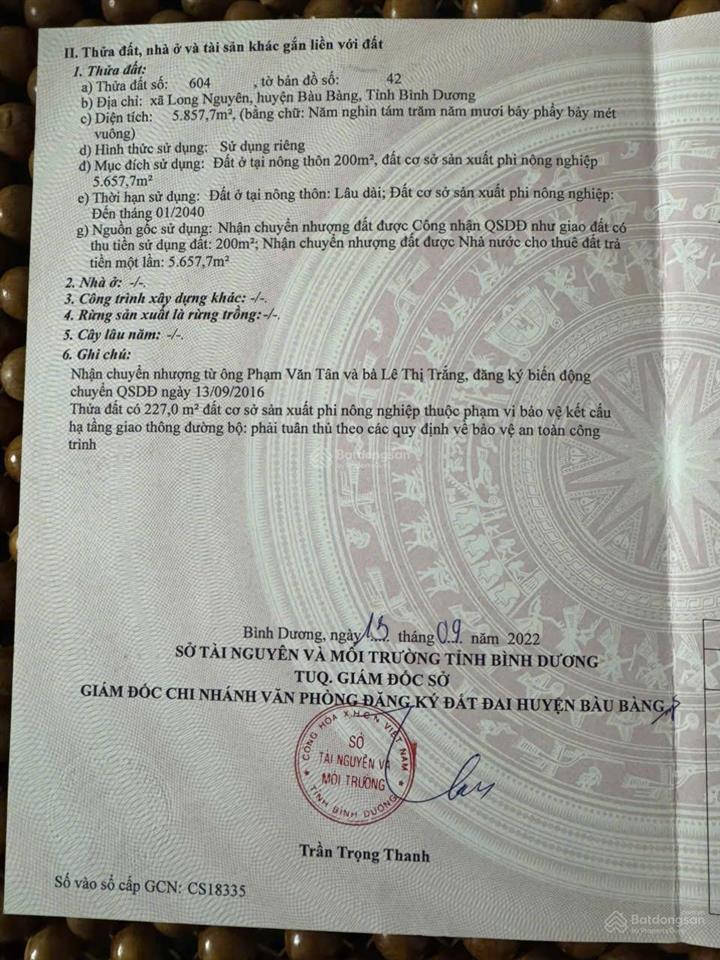 II. Thửa đất, nhà ở và tài sản khác gắn liền với đất
1. Thửa đất:
a) Thửa đất số: 604 , tờ bản đồ số: 42
b) Địa chỉ: xã Long Nguyên, huyện Bàu Bàng, Tỉnh Bình Dương
c) Diện tích: 5.857,7m², (bằng chữ: Năm nghìn tám trăm năm mươi bảy phẩy bảy mét
vuông)
d) Hình thức sử dụng: Sử dụng riêng
đ) Mục đích sử dụng: Đất ở tại nông thôn 200m², đất cơ sở sản xuất phi nông nghiệp
5.657,7m²
e) Thời hạn sử dụng: Đất ở tại nông thôn: Lâu dài; Đất cơ sở sản xuất phi nông nghiệp:
Đến tháng 01/2040
g) Nguồn gốc sử dụng: Nhận chuyển nhượng đất được Công nhận QSDĐ như giao đất có
thu tiền sử dụng đất: 200m²; Nhận chuyển nhượng đất được Nhà nước cho thuê đất trả
tiền một lần: 5.657,7m²
2. Nhà ở: -/-.
3. Công trình xây dựng khác: -/-.
4. Rừng sản xuất là rừng trồng:-/-.
5. Cây lâu năm: -/-.
6. Ghi chú:
Nhận chuyển nhượng từ ông Phạm Văn Tân và bà Lê Thị Trắng, đăng ký biến động
chuyển QSDĐ ngày 13/09/2016
Thửa đất có 227,0 m² đất cơ sở sản xuất phi nông nghiệp thuộc phạm vi bảo vệ kết cấu
hạ tầng giao thông đường bộ: phải tuân thủ theo các quy định về bảo vệ an toàn công
trình
Batdongsan
by PropertyGuru
Bình Dương, ngày 13 tháng 09 năm 2022
SỞ TÀI NGUYÊN VÀ MÔI TRƯỜNG TỈNH BÌNH DƯƠNG
TUQ. GIÁM ĐỐC SỞ
GIÁM ĐỐC CHI NHÁNH VĂN PHÒNG ĐĂNG KÝ ĐẤT ĐAI HUYỆN BÀU BÀNG
CỘNG HÒA X.H.C.N VIỆT NAM
SỞ
TÀI NGUYÊN VÀ
MÔI TRƯỜNG
TỈNH BÌNH DƯƠNG
Trần Trọng Thanh
Số vào sổ cấp GCN: CS18335
Batdongsan
by PropertyGuru